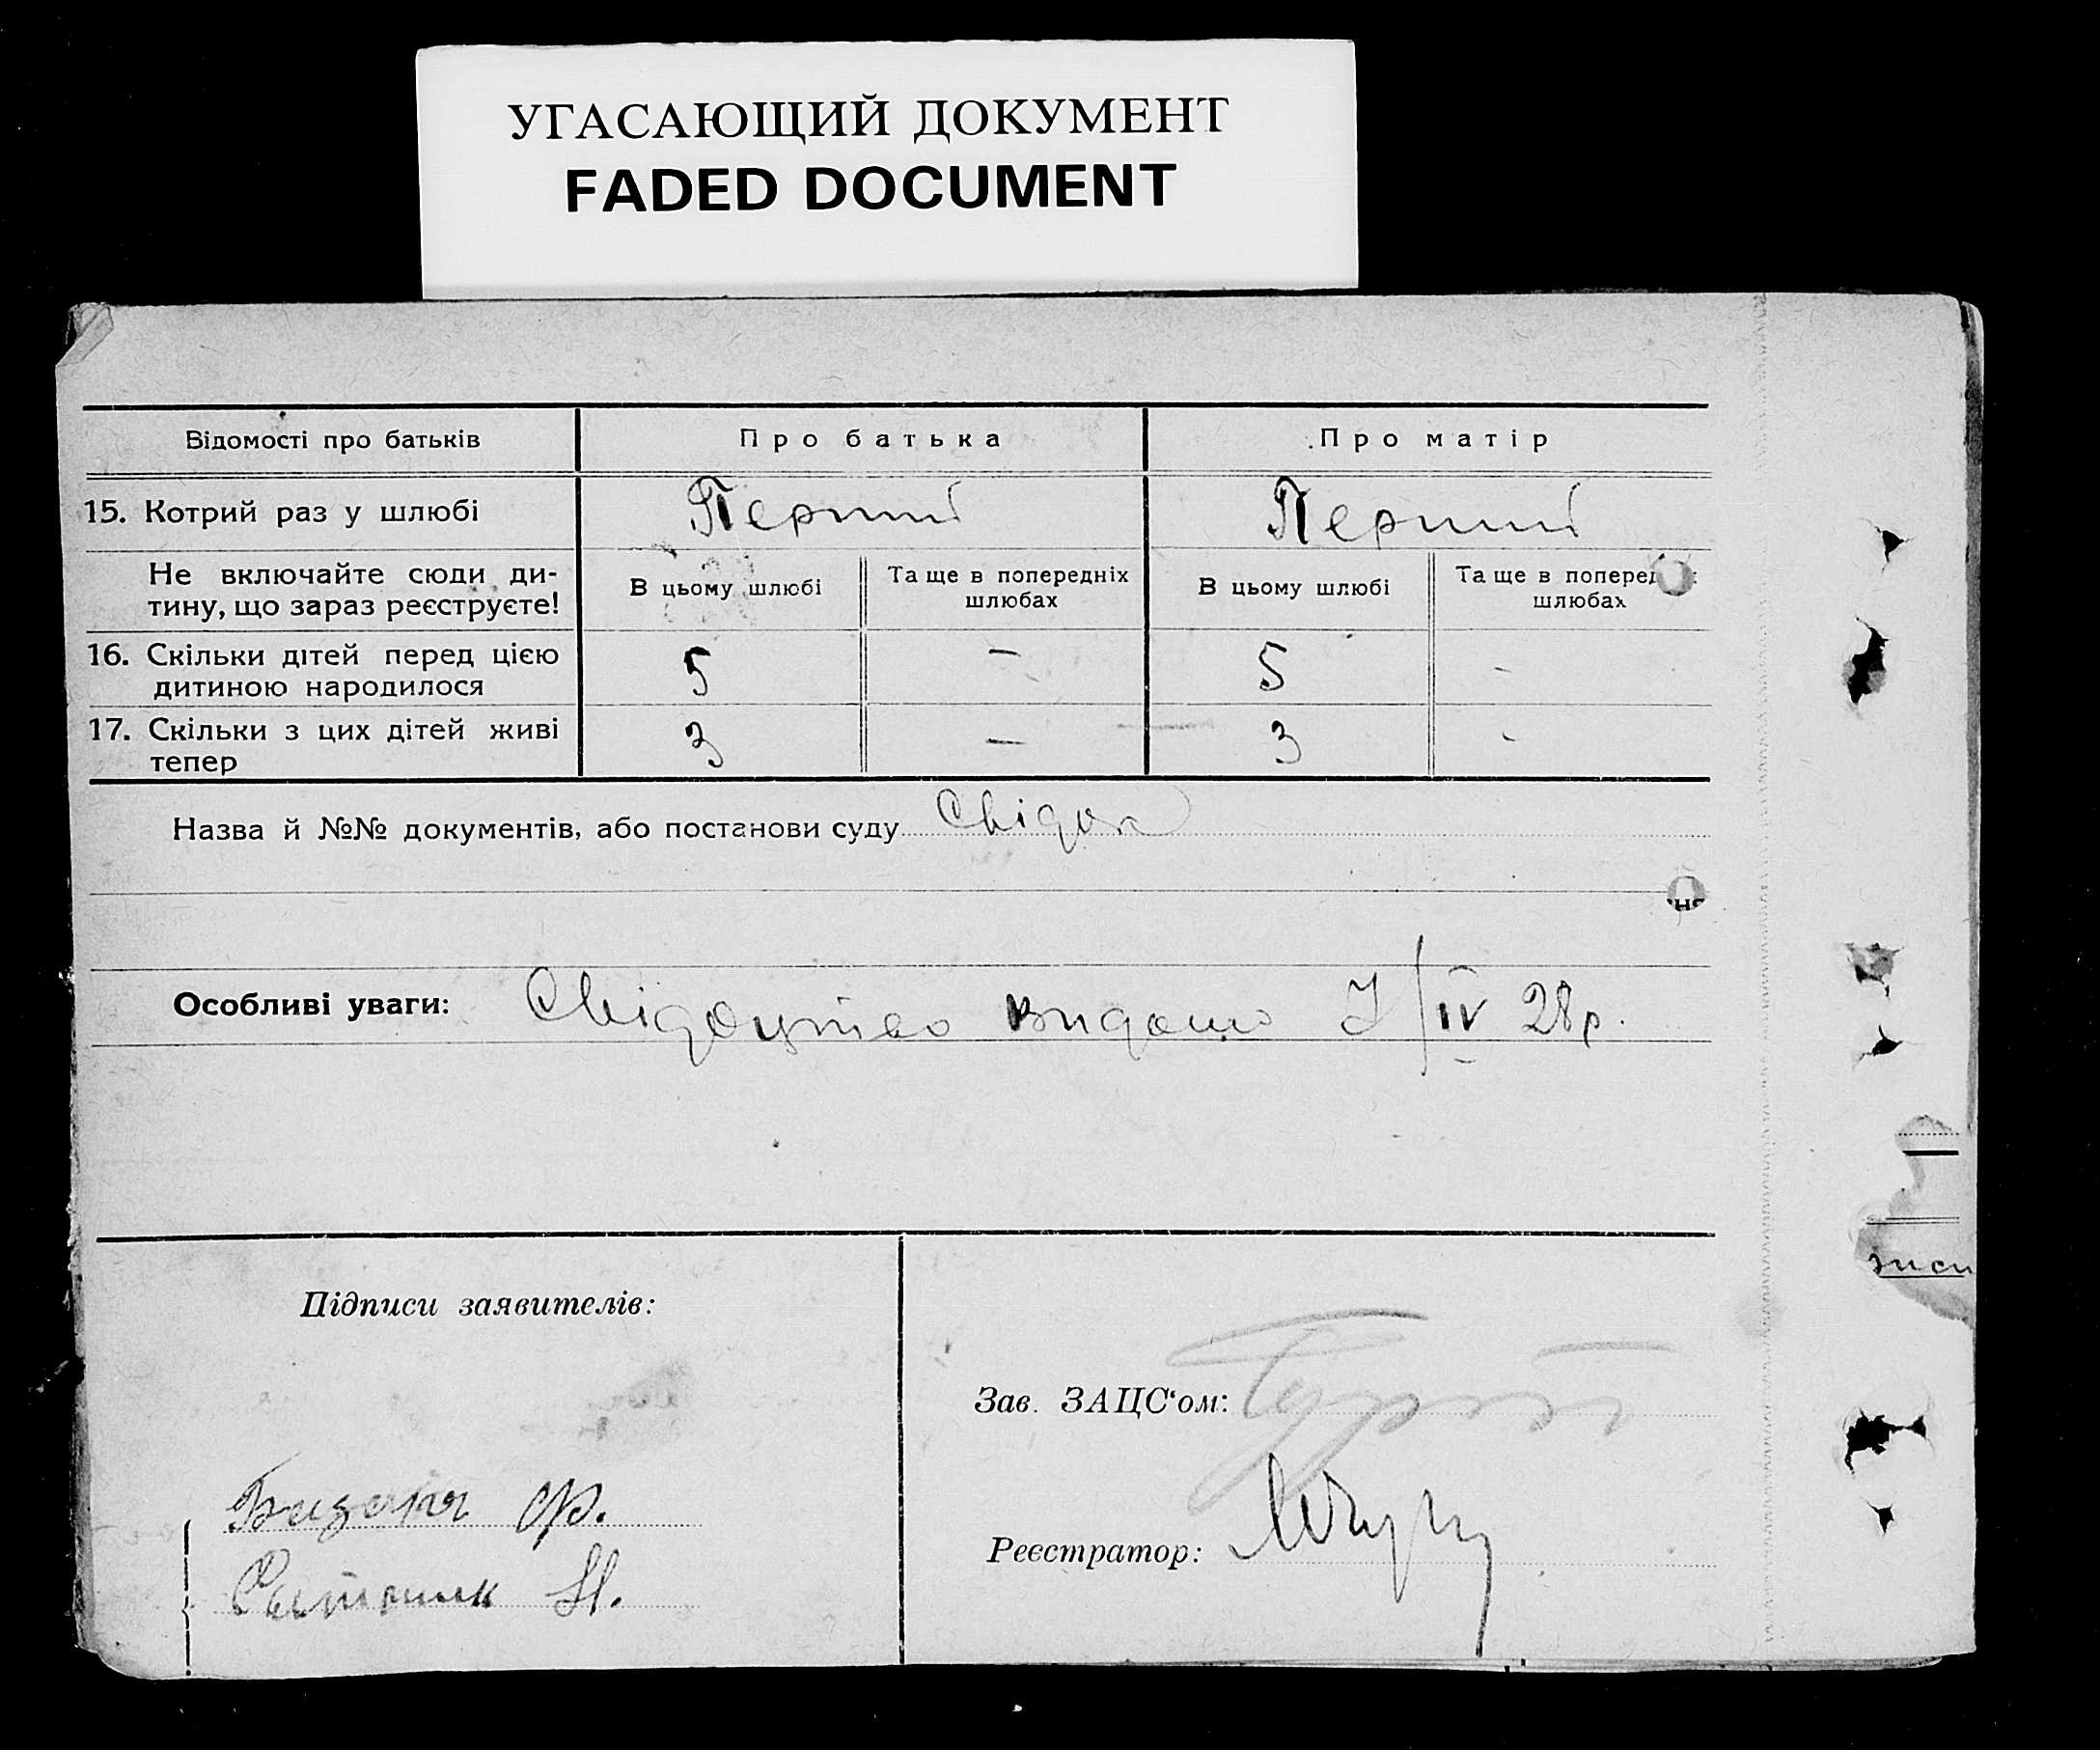 УГАСАЮЩИЙ ДОКУМЕНТ
FADED DOCUMENT
Відомості про батьків
Про батька
Про матір
15. Котрий раз у шлюбі
Перший
Перший
Не включайте сюди ди-
тину, що зараз реєструєте!
В цьому шлюбі
Та ще в попередніх
шлюбах
В цьому шлюбі
Та ще в
шлюбах
16. Скільки дітей перед цією
дитиною народилося
5
—
5
-
17. Скільки з цих дітей живі
тепер
3
—
3
-
Назва й №№ документів, або постанови суду
Особливі уваги: Свідоцтво видано /IV 28 р.
Підписи заявителів:
Зав. ЗАЦС'ом:
Реєстратор: